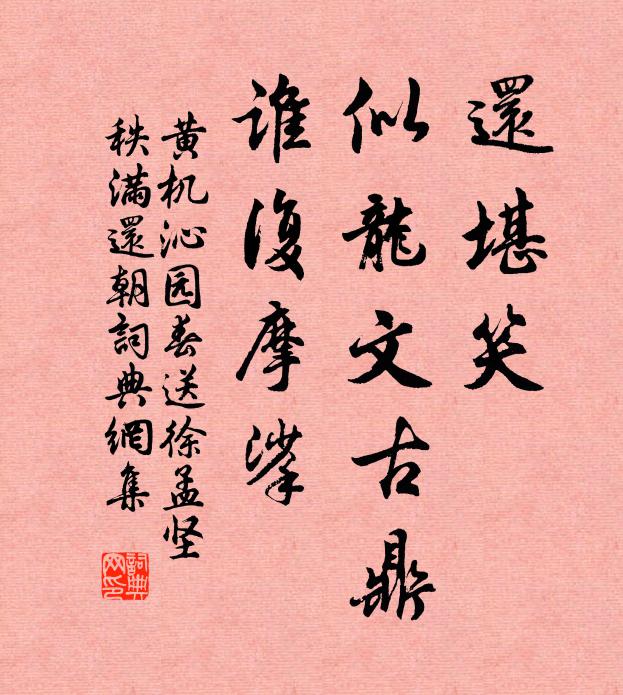 還堪笑
似龍文古鼎
誰復摩挲
黄机沁园春送徐孟坚
秩满還朝詞典網集
詞典
网印